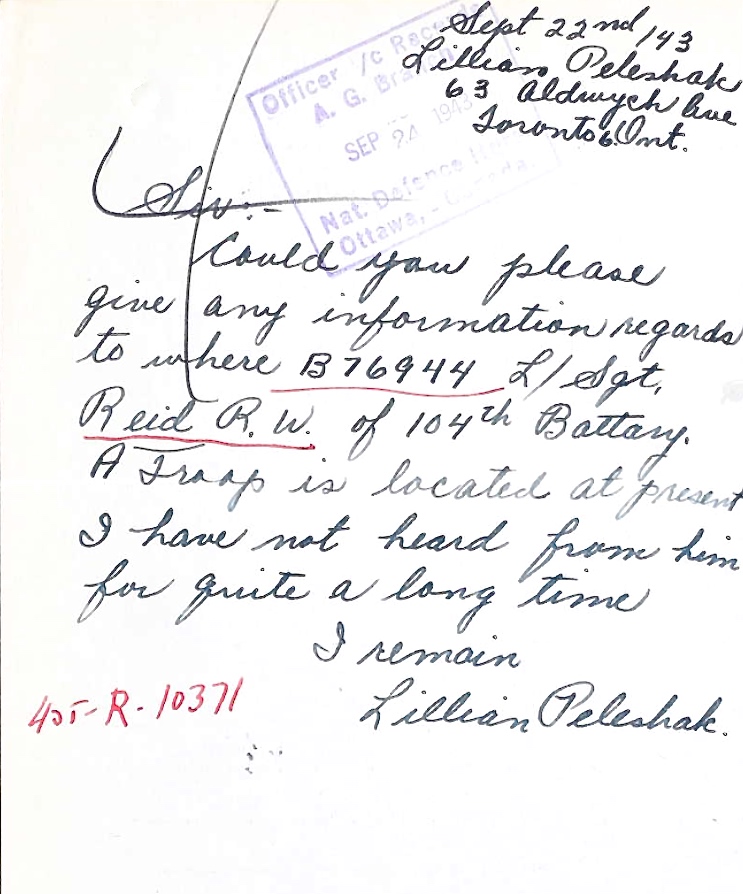 Sept 22nd/43
Lillian Peleshak
63 Aldwych Ave
Toronto 6. Ont.
Officer i/c Records
A. G. Branch
SEP 24 1943
Nat. Defence
Ottawa, - Canada.
Sir:-
Could you please
give any information regards
to where B76944 L/Sgt,
Reid R. W. of 104th Battary.
A Troop is located at present
I have not heard from him
for quite a long time
I remain
Lillian Peleshak.
405-R-10371